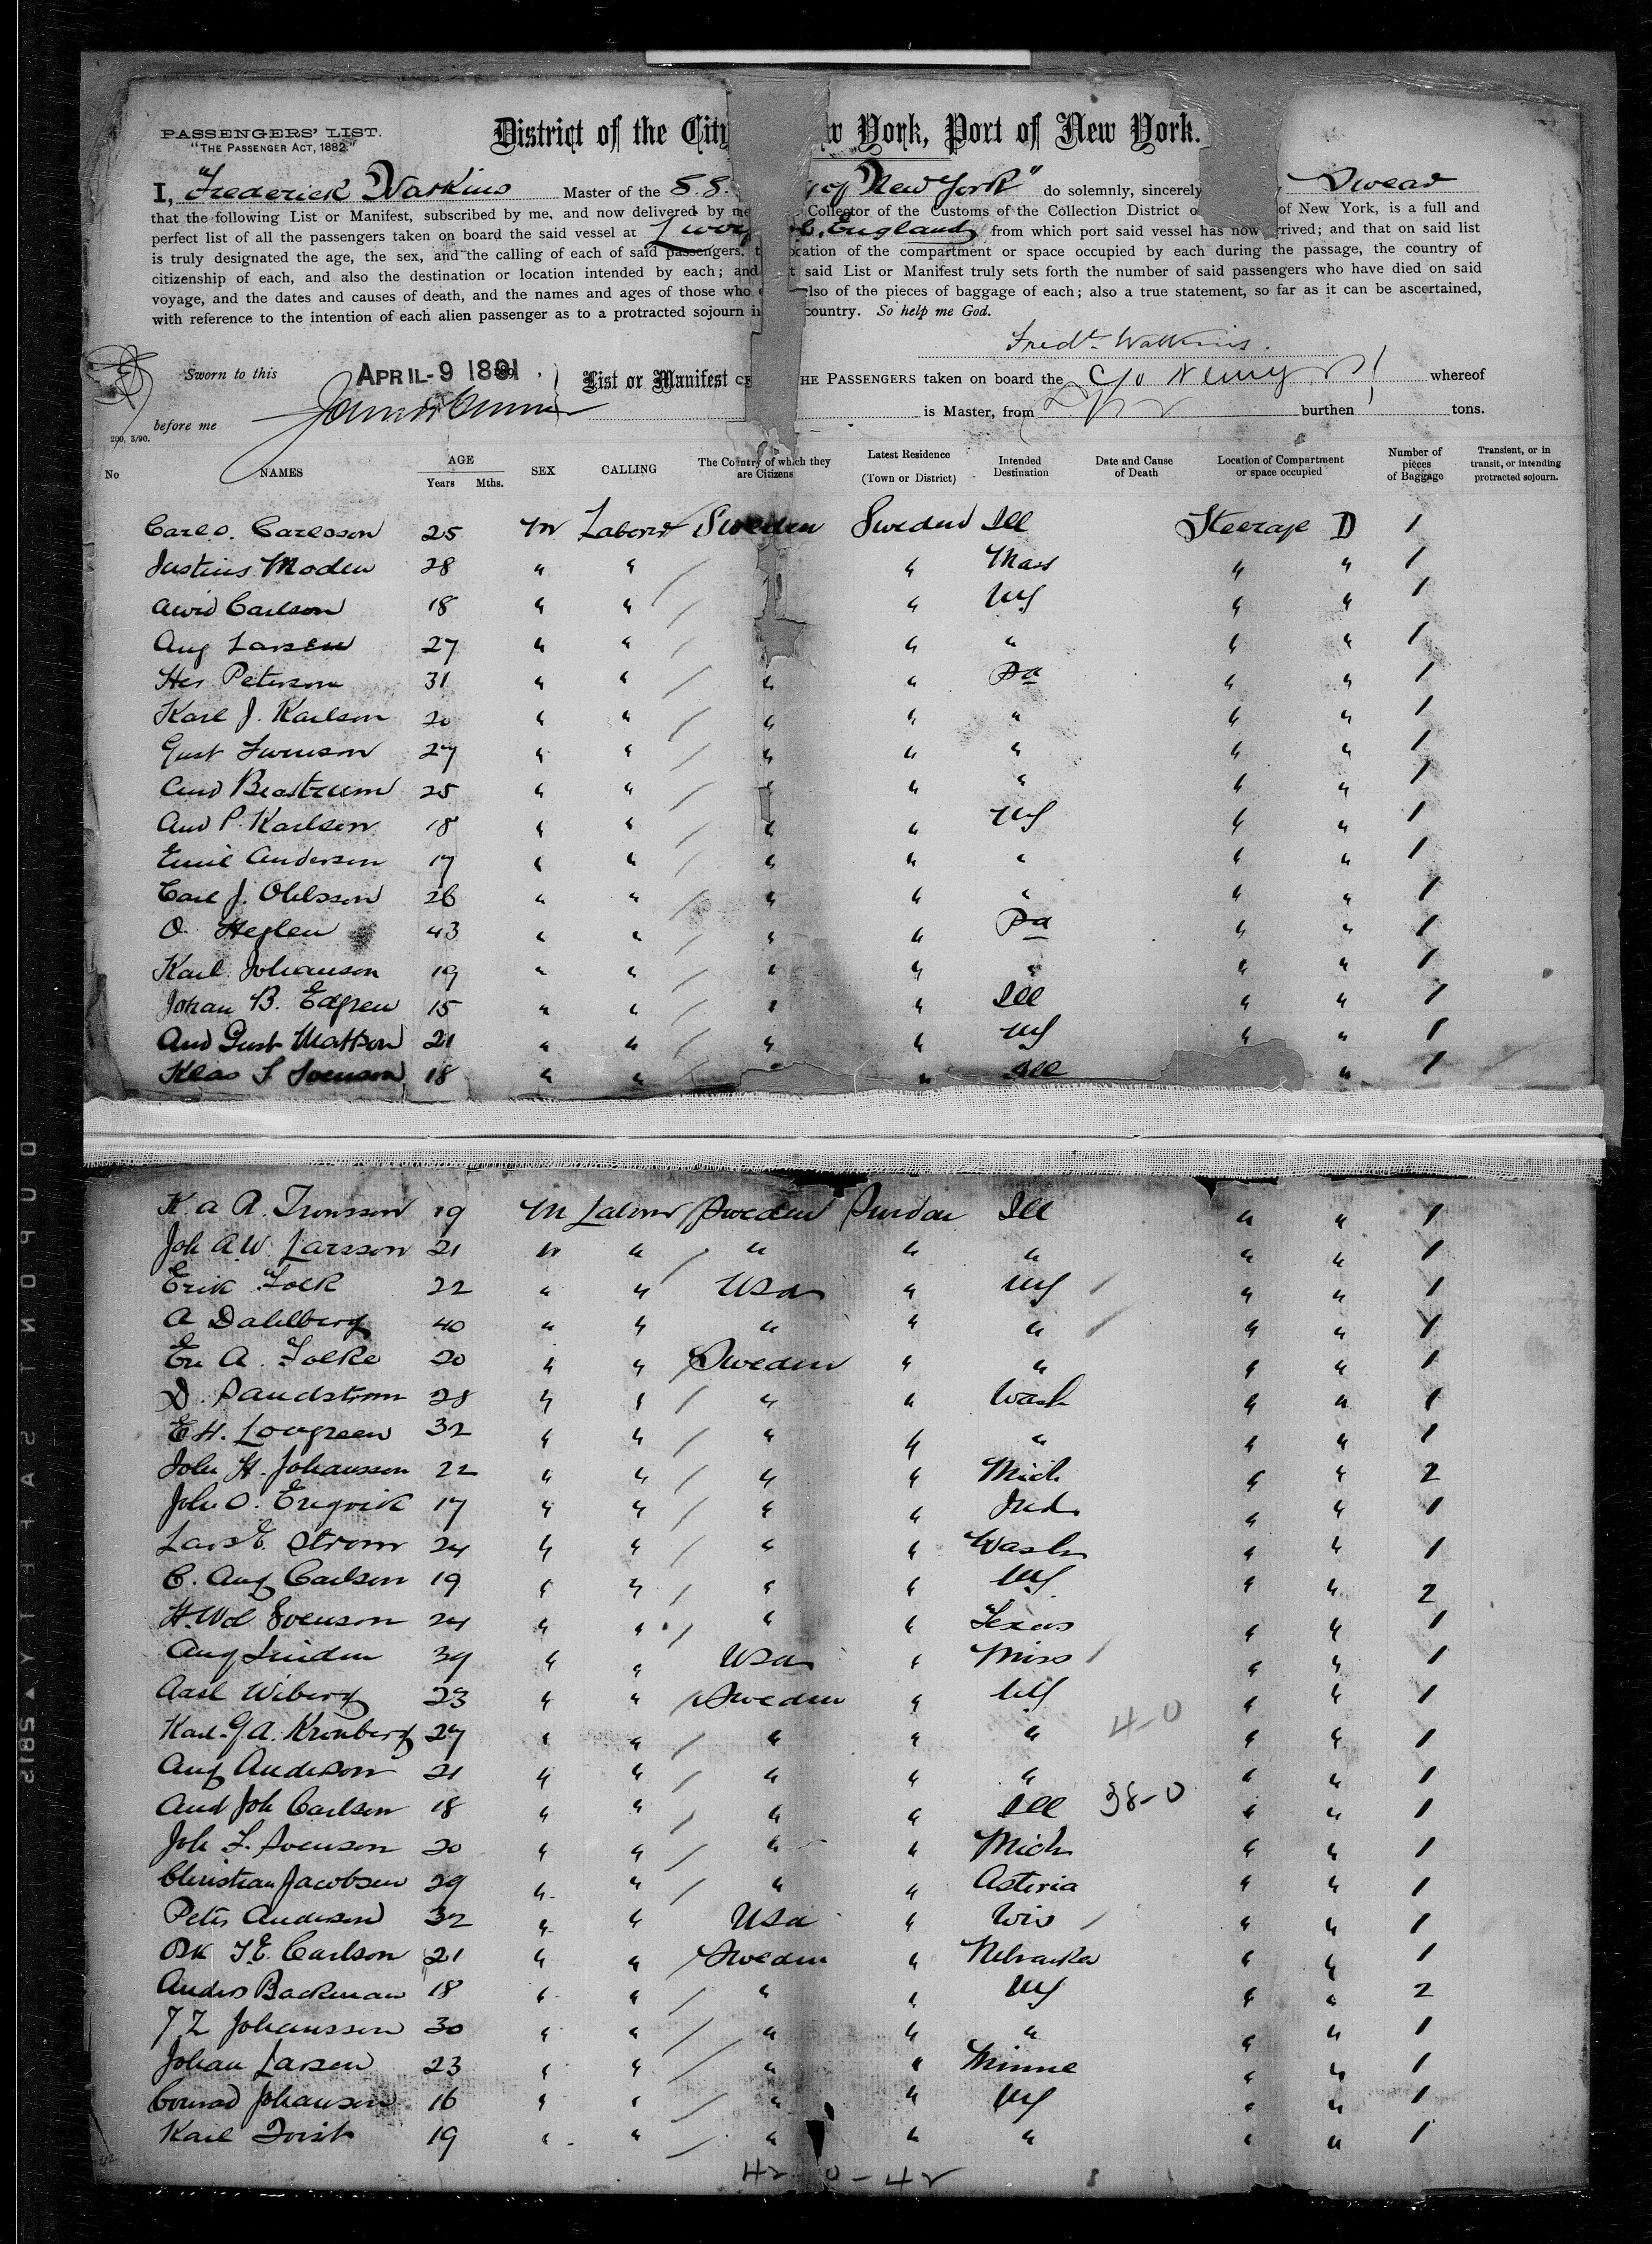 PASSENGERS' LIST.
"THE PASSENGER ACT, 1882."
District of the City w York, Port of New York.
I, "Frederick Watkins Master of the S.S. of New York" do solemnly, sincerely Swear
that the following List or Manifest, subscribed by me, and now delivered by me Collector of the Customs of the Collection District o of New York, is a full and
perfect list of all the passengers taken on board the said vessel at Liverp l, England from which port said vessel has now rrived; and that on said list
is truly designated the age, the sex, and the calling of each of said passengers, t ocation of the compartment or space occupied by each during the passage, the country of
citizenship of each, and also the destination or location intended by each; and t said List or Manifest truly sets forth the number of said passengers who have died on said
voyage, and the dates and causes of death, and the names and ages of those who lso of the pieces of baggage of each; also a true statement, so far as it can be ascertained,
with reference to the intention of each alien passenger as to a protracted sojourn in country. So help me God.
Fredk Watkins.
Sworn to this APRIL-9 1891
List or Manifest HE PASSENGERS taken on board the C/o N whereof
before me is Master, from burthen tons.
200, 3/90.
No NAMES AGE Years Mths. SEX CALLING The Country of which they are Citizens Latest Residence (Town or District) Intended Destination Date and Cause of Death Location of Compartment or space occupied Number of pieces of Baggage Transient, or in transit, or intending protracted sojourn.
Carl O. Carlsson 25 M Laborer Sweden Sweden Ill Steerage D 1
Justins Moden 28 " " " Mass " " 1
Arvid Carlson 18 " " " NY " " 1
Aug Larsen 27 " " " " " " 1
Her Peterson 31 " " " " Pa " " 1
Karl J. Karlson 20 " " " " " " " 1
Gust Swenson 27 " " " " " " " 1
And Beastrum 25 " " " " " " 1
And P. Karlson 18 " " " " NY " " 1
Emil Anderson 17 " " " " " " " 1
Carl J. Ohlsson 26 " " " " " " " 1
O. Heglen 43 " " " " Pa " " 1
Karl Johanson 19 " " " " " " " 1
Johan B. Edgren 15 " " " " Ill " " 1
And Gust Mattson 21 " " " " NY " " 1
Klas S Svenson 18 " " " " Ill " 1
K. A. R. Tronsson 19 M Laborer Sweden Sweden Ill " " 1
Joh A.W. Larsson 21 " " " " " " " 1
Erik Folk 22 " " USA " NY " " 1
A Dahlberg 40 " " " " " " " 1
Er. A. Folke 20 " " Sweden " " " " 1
D. Sandstrom 28 " " " " Wash " " 1
E H. Lovgreen 32 " " " " " " " 1
John H. Johansson 22 " " " " Mich " " 2
John O. Engvik 17 " " " " Ind " " 1
Lars E. Strom 24 " " " " Wash " " 1
C. Aug Carlson 19 " " " " NY " " 2
H. Wd Svenson 24 " " " " Texas " " 1
Aug Linden 39 " " USA " Miss " " 1
Axel Wiberg 23 " " Sweden " NY " " 1
Karl G.A. Kronberg 27 " " " " " 4-0 " " 1
Aug Anderson 21 " " " " " " " 1
And Joh Carlson 18 " " " " Ill 38-0 " " 1
Joh F. Svenson 20 " " " " Mich " " 1
Christian Jacobsen 29 " " " " Astoria " " 1
Peter Anderson 32 " " USA " Wis " " 1
Osk F.E. Carlson 21 " " Sweden " Nebraska " " 1
Anders Backman 18 " " " " NY " " 2
J Z Johansson 30 " " " " " " " 1
Johan Larsen 23 " " " " Minne " " 1
Conrad Johansen 16 " " " " NY " " 1
Karl Forst 19 " " " " " " " 1
42 42-0-42
DUPONT SAFETY ▲ 5185